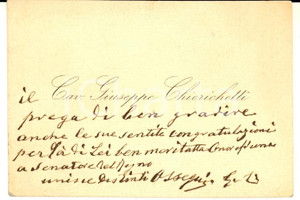 Cav. Giuseppe Chierichetti
il
prega di ben gradire
anche le sue sentite congratulazioni
per la di Lei ben meritatta
a Senatore del Regno
unisce distinti Ossequi